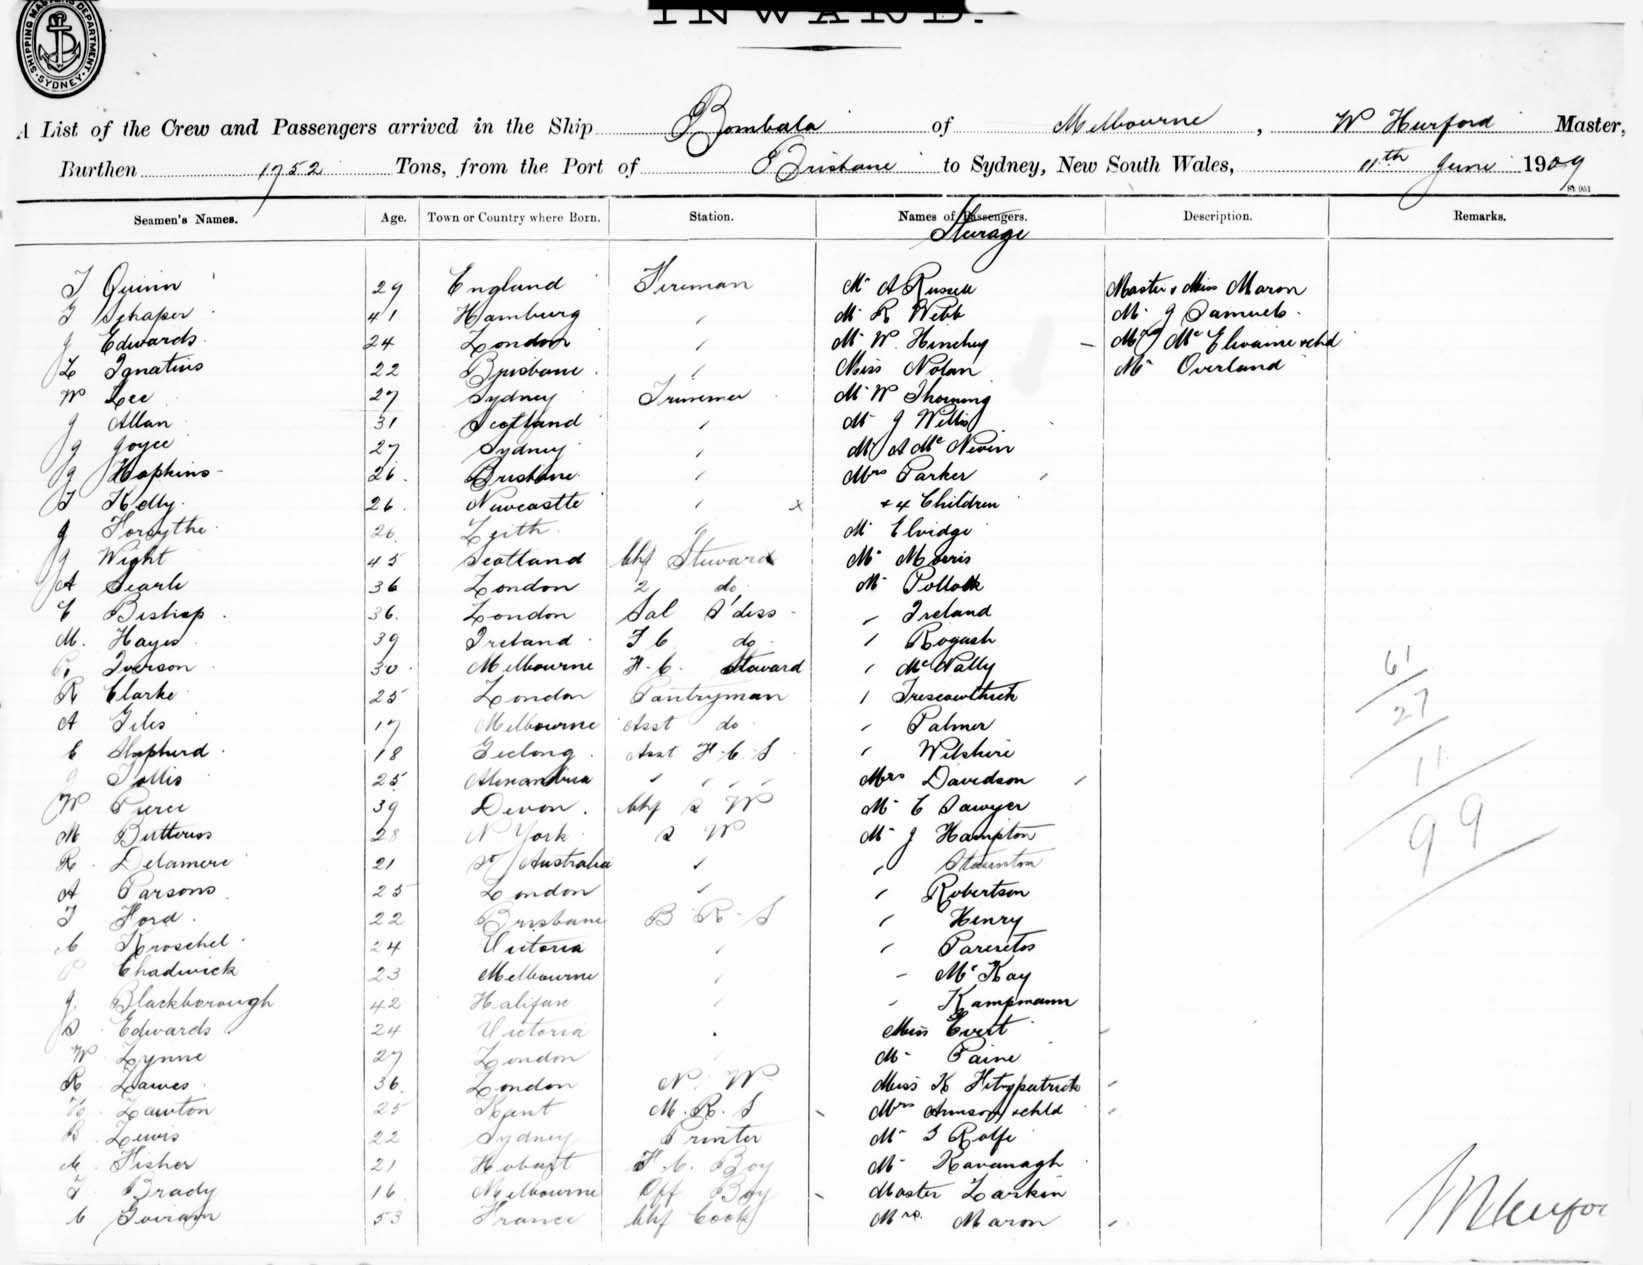 SHIPPING MASTERS DEPARTMENT. SYDNEY.
INWARD.
A List of the Crew and Passengers arrived in the Ship Bombala of Melbourne, W Hurford Master,
Burthen 1752 Tons, from the Port of Brisbane to Sydney, New South Wales, 11th June 1909
St 951
Seamen's Names. Age. Town or Country where Born. Station. Names of Passengers. Description. Remarks.
Sturage
T Quinn 29 England Fireman Mr A Russell Master & Miss Maron
Schaper 41 Hamburg Mr R Webb Mr J Samuels
J Edwards 24 London Mr W Hinchy Mc Elwaine & chd
L Ignatius 22 Brisbane Miss Nolan Mr Overland
W Lee 27 Sydney Trimmer Mr W Thorning
J Allan 31 Scotland Mr J Willis
J Joyce 27 Sydney Mr A McNivin
J Hopkins 26 Brisbane Mrs Parker
T Kelly 26 Newcastle x + 4 Children
J Forsythe 26 Leith Mr Elvidge
J Wight 45 Scotland Chf Steward Mr Morris
A Searle 36 London 2 do Mr Pollock
E Bishop 36 London Sal S'dess " Ireland
M. Hayes 39 Ireland F C do " Rogash
Iverson 30 Melbourne F. C. Steward " McNally
R Clarke 25 London Pantryman " Trescowthick
A Giles 17 Melbourne Asst do " Palmer
C Shepherd 18 Geelong Asst F. C. S " Wilshire
Tollis 25 Alexandria " " " " Mrs Davidson
W Pierce 39 Devon Chf S W Mr C Sawyer
M Butteriss 28 N York S W Mr J Hampton
R Delamere 21 Australia " " Staunton
A Parsons 25 London " " Robertson
T Ford 22 Brisbane B. R. S " Henry
C Kroschel 24 Victoria "
P Chadwick 23 Melbourne " McKay
J. Blackborough 42 Halifax " Kampmann
S Edwards 24 Victoria Miss Evert
W Lynne 27 London Mr Paine
R Lawes 36 London N. W. Miss K Fitzpatrick
H Lawton 25 Kent M. R. S Mrs & chld
B Lewis 22 Sydney Printer Mr S Rolfe
M Fisher 21 Hobart F. C. Boy Mr Kavanagh
T Brady 16 Melbourne Off Boy Master Larkin
C 53 France Chf Cook Mrs. Maron
61
27
11
99